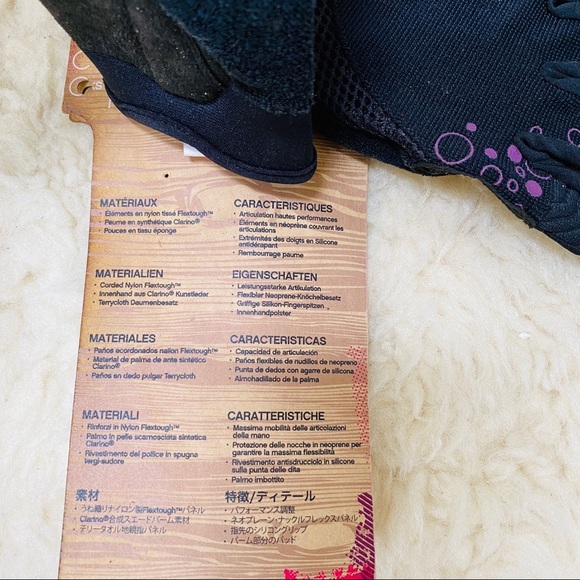 MATÉRIAUX
· Éléments en nylon tissé Flextough™
· Paume en synthétique Clarino®
· Pouces en tissu éponge
CARACTERISTIQUES
· Articulation hautes performances
· Eléments en néoprène couvrant les
articulations
· Extrémités des doigts en Silicone
antidérapant
· Rembourrage paume
MATERIALIEN
· Corded Nylon Flextough™
· Innenhand aus Clarino® Kunstleder
· Terrycloth Deumenbesatz
EIGENSCHAFTEN
· Leistungsstarke Artikulation
· Flexibler Neoprene-Knöchelbesatz
· Griffige Silikon-Fingerspitzen
· Innenhandpolster
MATERIALES
· Paños acordonados nailon Flextough™
· Material de palma de ante sintético
Clarino®
· Paños en dedo pulgar Terrycloth
CARACTERISTICAS
· Capacidad de articulación
· Paños flexibles de nudillos de neopreno
· Punta de dedos con agarre de silicona
· Almohadillado de la palma
MATERIALI
· Rinforzi in Nylon Flextough™
· Palmo in pelle scamosciata sintetica
Clarino®
· Rivestimento del pollice in spugna
tergi-sudore
CARATTERISTICHE
· Massima mobilità delle articolazioni
della mano
· Protezione delle nocche in neoprene per
garantire la massima flessibilità
· Rivestimento antisdrucciolo in silicone
sulla punta delle dita
· Palmo imbottito
素材
· うね織りナイロン製Flextough™パネル
· Clarino®合成スエードパーム素材
· テリータオル地親指パネル
特徴/ディテール
· パフォーマンス調整
· ネオプレーン・ナックルフレックスパネル
· 指先のシリコングリップ
· パーム部分のパッド